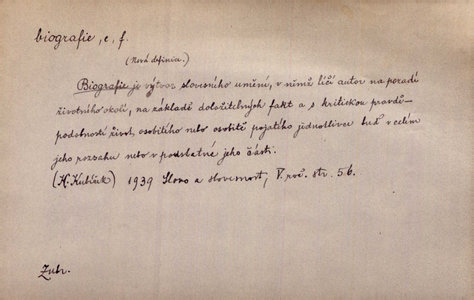 biografie, e, f.
(Nová definice.)
Biografie je výtvor slovesného umění, v němž líčí autor na pozadí
životního okolí, na základě doložitelných fakt a s kritickou pravdě-
podobností život osobitého nebo osobitě pojatého jednotlivce buď v celém
jeho rozsahu nebo v podstatné jeho části.
(K. Kubíček) 1939 Slovo a slovesnost, V. roč. str. 56.
Zubr.